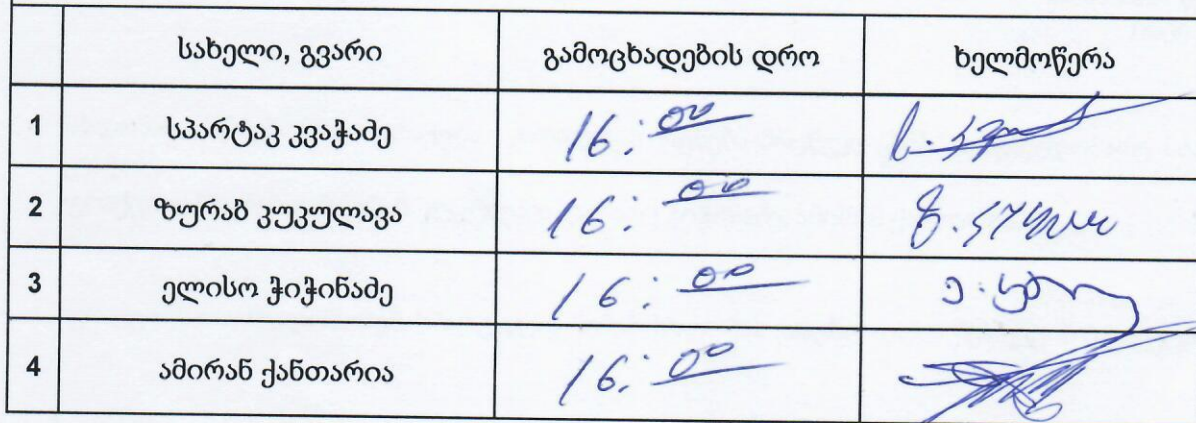 სახელი, გვარი გამოცხადების დრო ხელმოწერა
1 სპარტაკ კვაჭაძე 16:00
2 ზურაბ კუკულავა 16:00
3 ელისო ჭიჭინაძე 16:00
4 ამირან ქანთარია 16:00